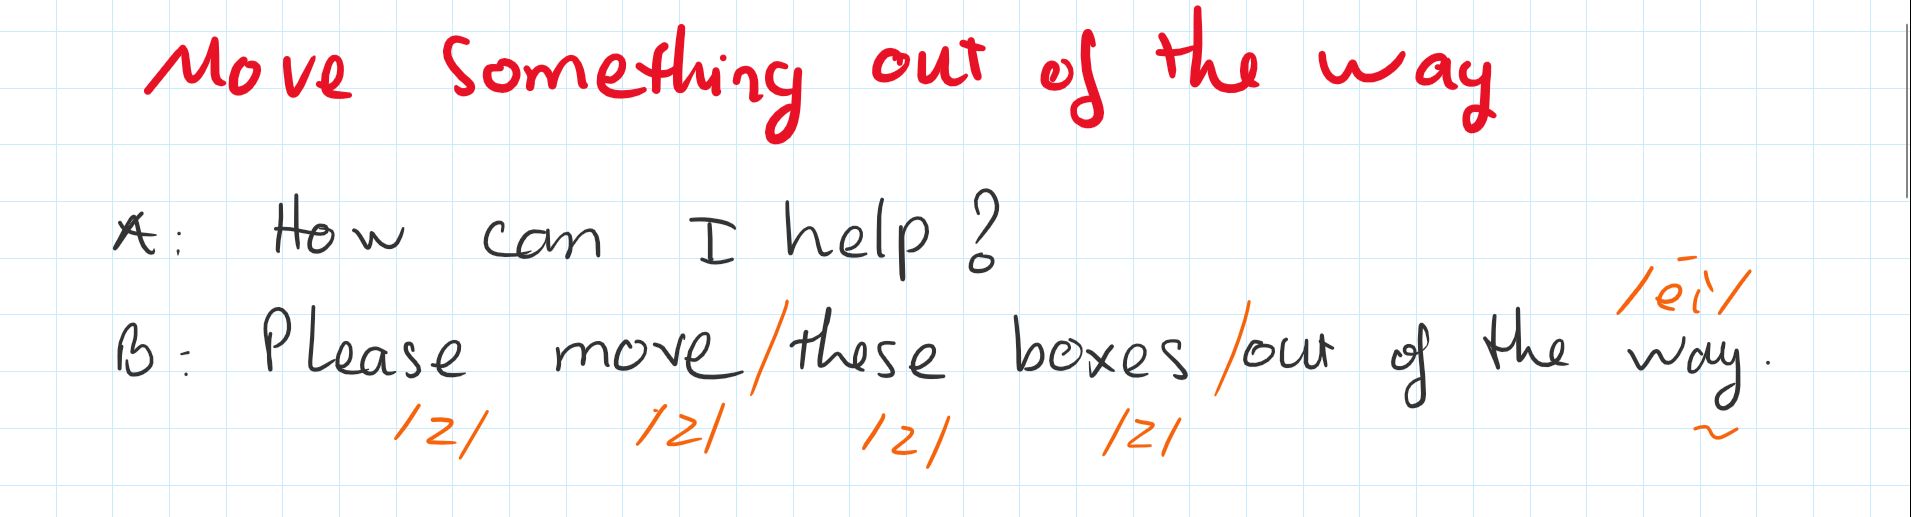 Move Something out of the way
A: How can I help?
/ēi/
B: Please move / these boxes / out of the way.
/z/ /z/ /z/ /z/ ~